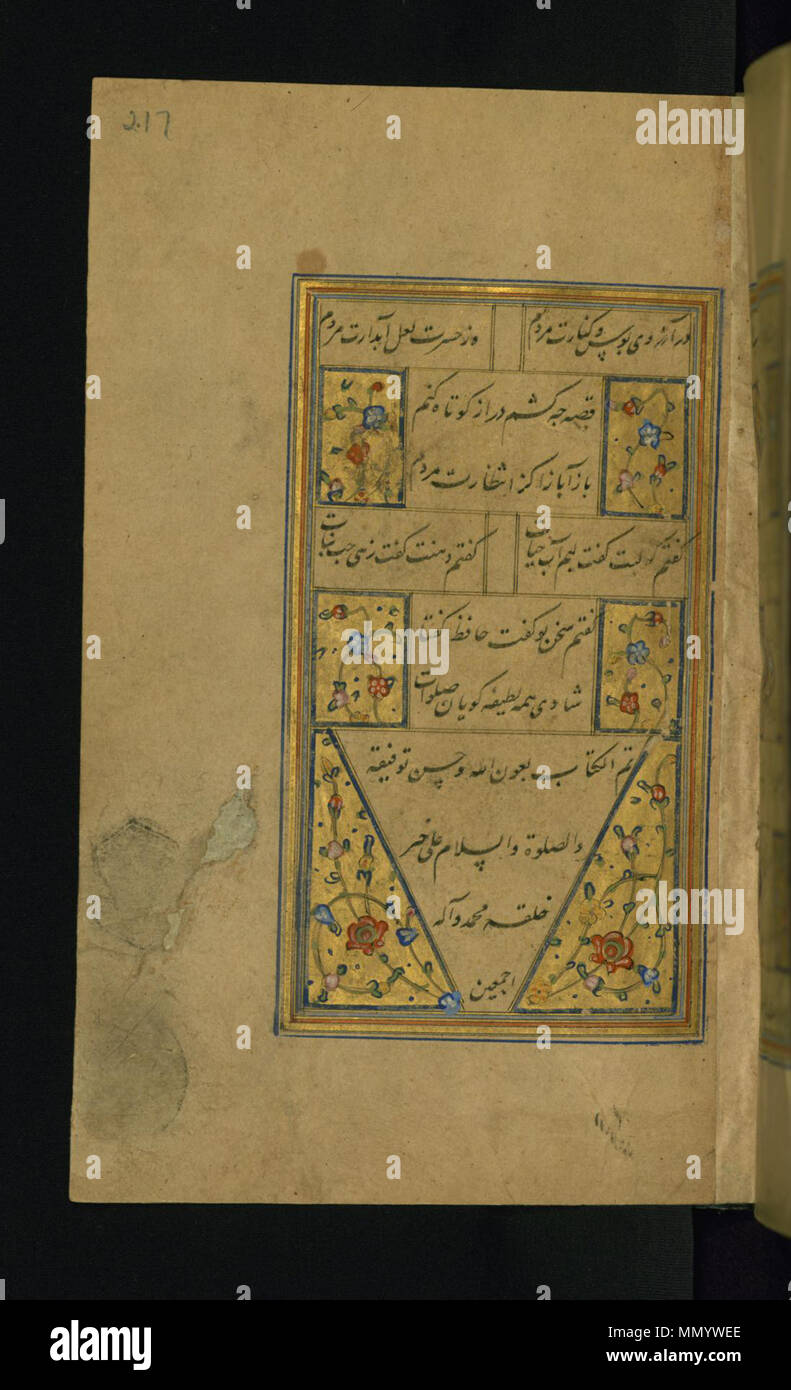 217
در آرزوی بوس و کنارت مردم
وز حسرت لعل آبدارت مردم
قصه چه کشم دراز کوتاه کنم
باز آ باز آ کز انتظارت مردم
گفتم که لبت گفت لبم آب حیات
گفتم دهنت گفت زهی حب نبات
گفتم سخن تو گفت حافظ گفتا
شادی همه لطیفه گویان صلوات
تم الکتاب بعون الله وحسن توفیقه
والصلوة والسلام علی خیر
خلقه محمد وآله
اجمعین
alamy
Image ID: MMYWEE
www.alamy.com